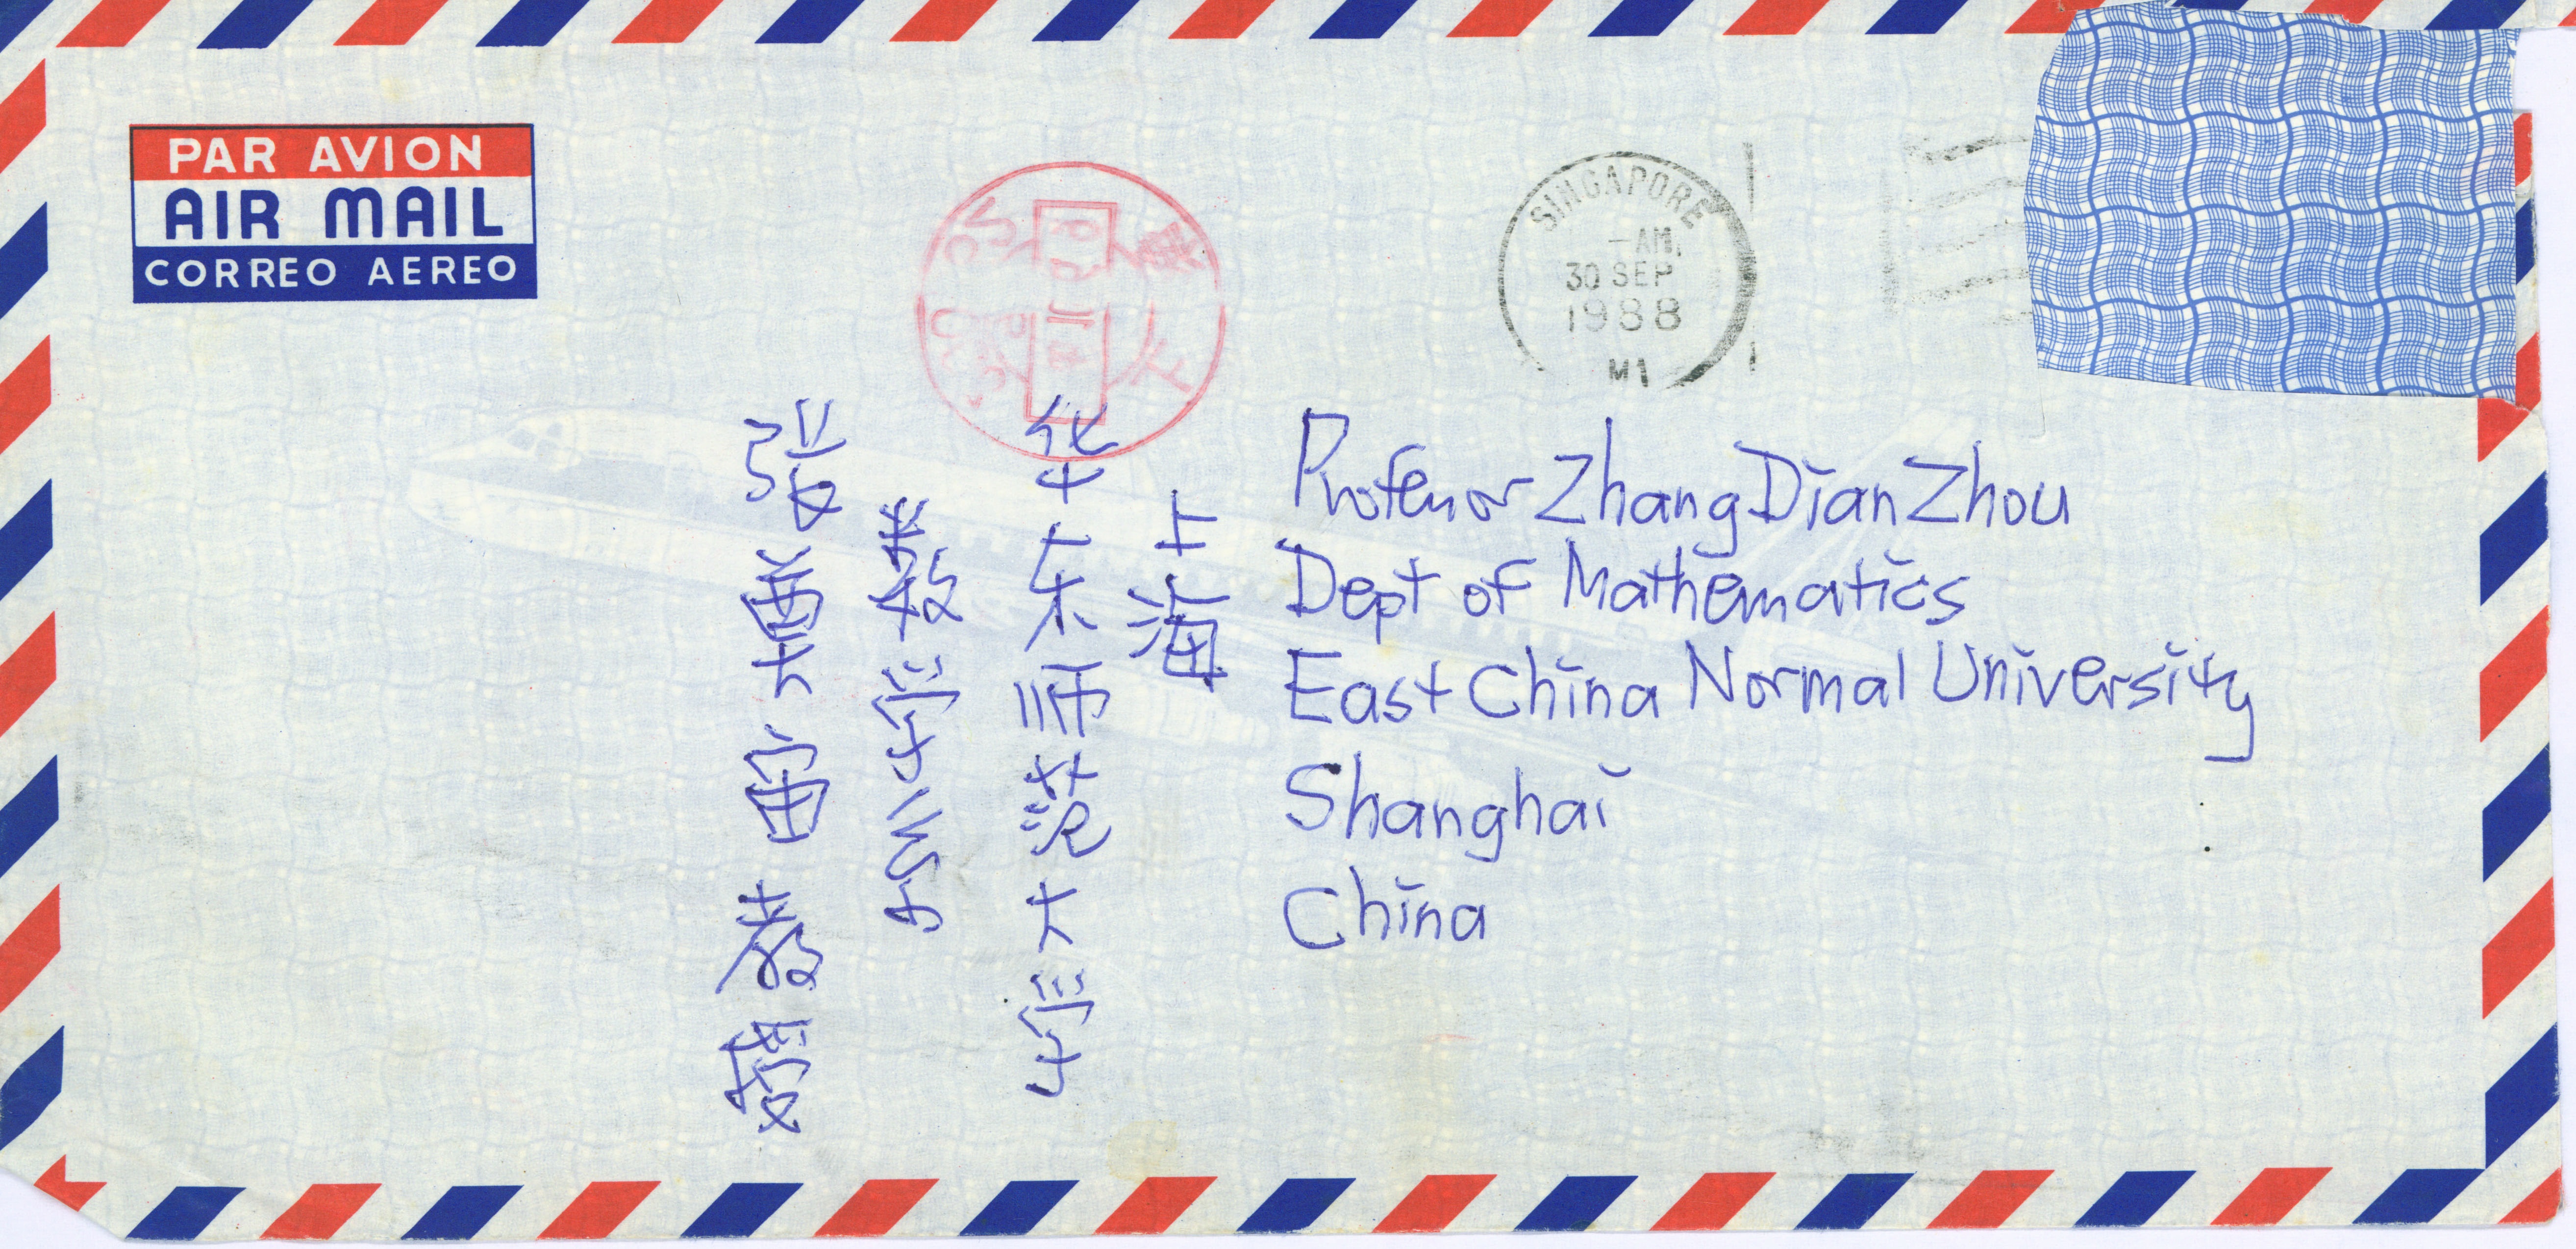 PAR AVION
AIR MAIL
CORREO AEREO
SINGAPORE
-AM.
30 SEP
1988
M1
上海
华东师范大学
数学系
张奠宙教授
Professor Zhang Dian Zhou
Dept of Mathematics
East China Normal University
Shanghai
China